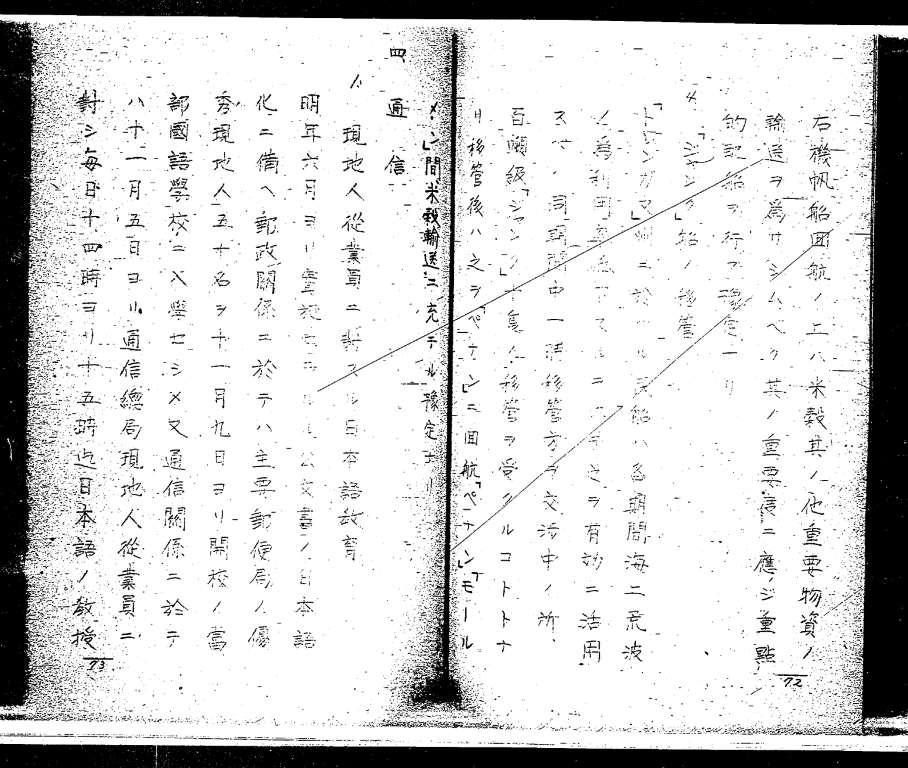 右機帆船回航ノ上ハ米穀其ノ他重要物資ノ
輸送ヲ為サシムベク其ノ重要度ニ應ジ重點
的配船ヲ行フ豫定ナリ
4.「ジャンク」船ノ移管
「トレンガヌ」州ニ於ケル民船ハ冬期間海上荒波
ノ為利用
ヲ有効ニ活用
スベク同期間中一時移管方ヲ交渉中ノ所
百噸級「ジャンク」十隻ノ移管ヲ受クルコトトナ
リ移管後ハ之ヲ「ペナン」ニ回航「ペナン」「モール
メン」間米穀輸送ニ充テル豫定ナリ
72
四 通信
1. 現地人從業員ニ對スル日本語教育
明年六月ヨリ實施
公文書ノ日本語
化ニ備ヘ郵政關係ニ於テハ主要郵便局ノ優
秀現地人五十名ヲ十一月九日ヨリ開校ノ當
部國語學校ニ入學セシメ又通信關係ニ於テ
ハ十一月五日ヨリ通信總局現地人從業員ニ
對シ每日十四時ヨリ十五時迄日本語ノ教授
73